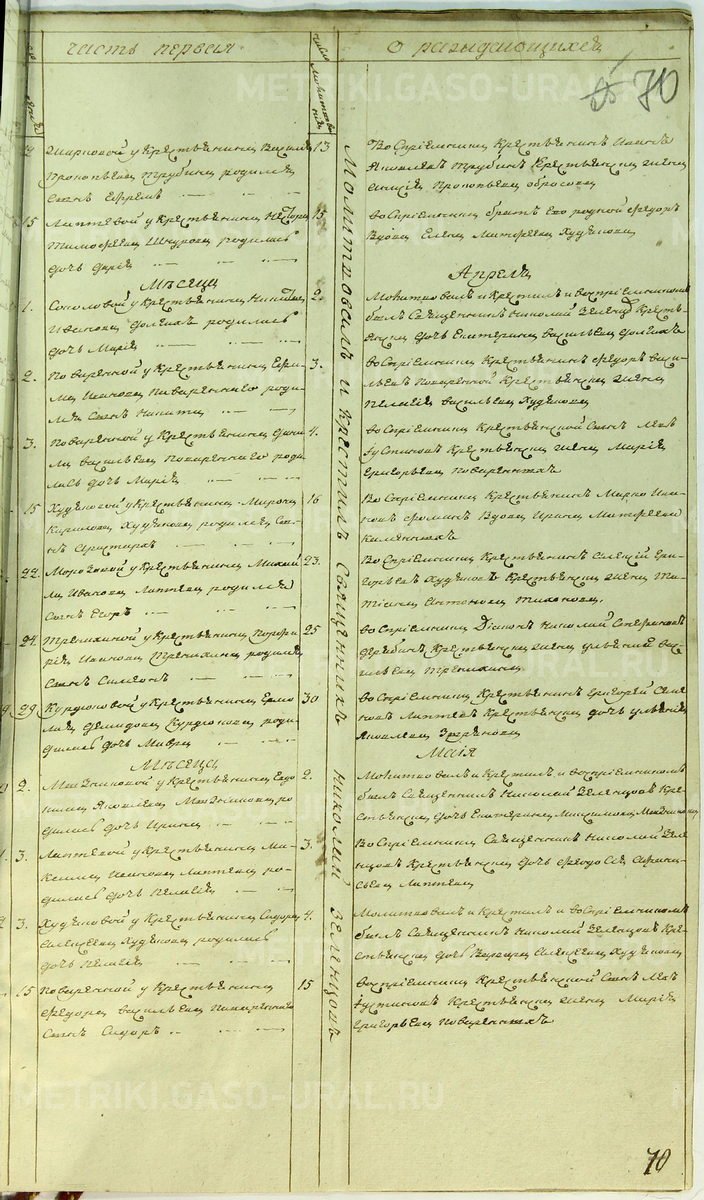 часть первая
О раждающихся
70
числа
молитвованія
Ширковой у крестьянина Василья
Прокопьева Трубина родился
сынъ Ефремъ
13
Воспріемники крестьянинъ Иванъ
Яковлевъ Трубинъ крестьянска жена
Прокопьева
15
Лаптевой у крестьянина Нестора
Тимофеева родилась
дочь Дарія
15
воспріемники братъ его родной Федоръ
Вдова Елена Матфеева Худякова
Мѣсяца
Апреля
1.
Соколовой у крестьянина Никиты
Иванова Долгихъ родилась
дочь Марія
2.
Молитвовалъ и крестилъ и воспріемникомъ
былъ Священникъ Николай Зеленцовъ кресть-
янска дочь Екатерина Васильева Долгихъ
2.
Поваренной у крестьянина Ефи-
ма Иванова Поваренного роди-
лся сынъ Никита
3.
воспріемники крестьянинъ Федоръ Васи-
льевъ Поваренной крестьянска жена
Пелагія Васильева Худякова
3.
Поваренной у крестьянина
ла Васильева Поваренного роди-
лась дочь Марія
4.
воспріемники крестьянской сынъ Левъ
Густиновъ крестьянска жена Марія
Григорьева Поваренныхъ
15
Худяковой у крестьянина Мирона
Кирилова Худякова родился сы-
нъ Аристархъ
16
Воспріемники крестьянинъ Марко Ива-
новъ Вдова Ирина Матфеева
22.
Морозовой у крестьянина Михай
ла Иванова Лаптева родился
сынъ Егоръ
23.
Воспріемники крестьянинъ Алексій Гри-
горьевъ Худяковъ крестьянска жена Та-
тіана Антонова
24.
Тремихиной у крестьянина Порфи-
рія Иванова родился
сынъ Симеонъ
25
воспріемники Діаконъ Николай Стефановъ
крестьянска жена Ульянія Вас-
ильева
29.
Курдюковой у крестьянина Ермо-
лая Демидова Курдюкова роди-
лась дочь Мавра
30
воспріемники крестьянинъ Григорей Семе
новъ Лаптевъ крестьянска дочь Ульянія
Яковлева
Мѣсяца
Маія
2.
у крестьянина Евдо-
кима Яковлева ро-
дилась дочь Ирина
2.
Молитвовалъ и крестилъ и воспріемникомъ
былъ Священникъ Николай Зеленцовъ кре-
стьянска дочь Екатерина Максимова
3.
Лаптевой у крестьянина Ми-
хаила Иванова Лаптева ро-
дилась дочь Пелагія
3.
Воспріемники Священникъ Николай Зеле
нцовъ крестьянска дочь Феодосія Афана-
сьева Лаптева
3.
Худяковой у крестьянина Сидора
Алексеева Худякова родилась
дочь Пелагія
4.
Молитвовалъ и крестилъ и воспріемникомъ
былъ Священникъ Николай Зеленцовъ кре-
стьянска дочь Варвара Алексеева Худякова
15
Поваренной у крестьянина
Федора Васильева Поваренного
сынъ Сидоръ
15
воспріемники крестьянской сынъ Левъ
Густиновъ крестьянска жена Марія
Григорьева Поваренныхъ
Молитвовалъ и крестилъ священникъ Николай Зеленцовъ
70
METRIKI.GASO-URAL.RU